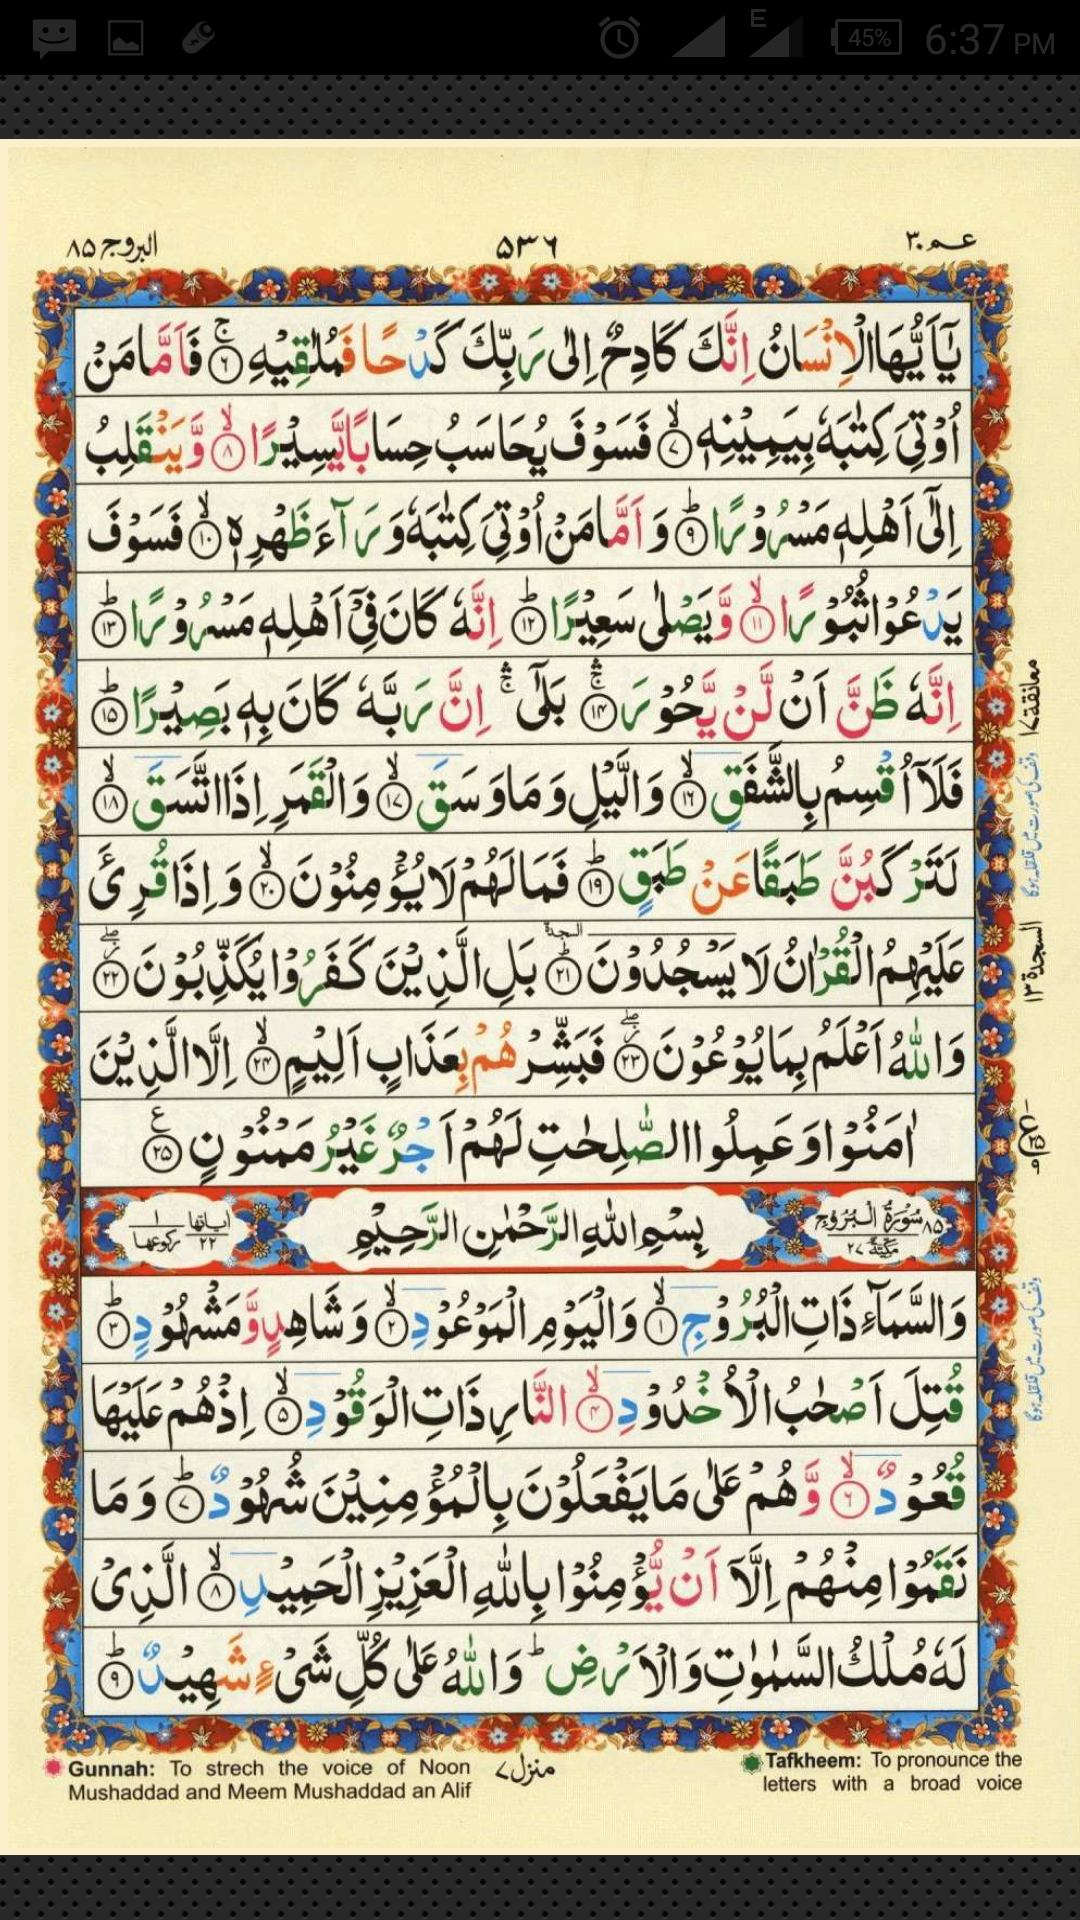 45% 6:37 PM
عـمـ ۳۰
۵۳۶
البروج ۸۵
يٰۤاَيُّهَا الۡاِنۡسَانُ اِنَّكَ كَادِحٌ اِلٰى رَبِّكَ كَدۡحًا فَمُلٰقِيۡهِ ۚ‏ ﴿۶﴾ فَاَمَّا مَنۡ
اُوۡتِىَ كِتٰبَهٗ بِيَمِيۡنِهٖۙ‏ ﴿۷﴾ فَسَوۡفَ يُحَاسَبُ حِسَابًا يَّسِيۡرًا ۙ‏ ﴿۸﴾ وَّيَنۡقَلِبُ
اِلٰٓى اَهۡلِهٖ مَسۡرُوۡرًا ؕ‏ ﴿۹﴾ وَاَمَّا مَنۡ اُوۡتِىَ كِتٰبَهٗ وَرَآءَ ظَهۡرِهٖۙ‏ ﴿۱۰﴾ فَسَوۡفَ
يَدۡعُوۡا ثُبُوۡرًا ۙ‏ ﴿۱۱﴾ وَّيَصۡلٰى سَعِيۡرًا ؕ‏ ﴿۱۲﴾ اِنَّهٗ كَانَ فِىۡۤ اَهۡلِهٖ مَسۡرُوۡرًا ؕ‏ ﴿۱۳﴾
اِنَّهٗ ظَنَّ اَنۡ لَّنۡ يَّحُوۡرَ ۛۚ‏ ﴿۱۴﴾ بَلٰٓى ۛۚ اِنَّ رَبَّهٗ كَانَ بِهٖ بَصِيۡرًا ؕ‏ ﴿۱۵﴾
فَلَاۤ اُقۡسِمُ بِالشَّفَقِۙ‏ ﴿۱۶﴾ وَالَّيۡلِ وَمَا وَسَقَۙ‏ ﴿۱۷﴾ وَالۡقَمَرِ اِذَا اتَّسَقَۙ‏ ﴿۱۸﴾
لَتَرۡكَبُنَّ طَبَقًا عَنۡ طَبَقٍؕ‏ ﴿۱۹﴾ فَمَا لَهُمۡ لَا يُؤۡمِنُوۡنَۙ‏ ﴿۲۰﴾ وَاِذَا قُرِئَ
عَلَيۡهِمُ الۡقُرۡاٰنُ لَا يَسۡجُدُوۡنَ ؕ‏ السجدة ﴿۲۱﴾ بَلِ الَّذِيۡنَ كَفَرُوۡا يُكَذِّبُوۡنَ ۖ‏ ﴿۲۲﴾
وَاللّٰهُ اَعۡلَمُ بِمَا يُوۡعُوۡنَ ۖ‏ ﴿۲۳﴾ فَبَشِّرۡهُمۡ بِعَذَابٍ اَلِيۡمٍۙ‏ ﴿۲۴﴾ اِلَّا الَّذِيۡنَ
اٰمَنُوۡا وَعَمِلُوا الصّٰلِحٰتِ لَهُمۡ اَجۡرٌ غَيۡرُ مَمۡنُوۡنٍ ﴿۲۵﴾ ع
۸۵ سُوۡرَةُ الۡبُرُوۡجِ مَكِّيَّةٌ ۲۷
بِسۡمِ اللّٰهِ الرَّحۡمٰنِ الرَّحِيۡمِ
اٰياتها ۲۲ ركوعها ۱
وَالسَّمَآءِ ذَاتِ الۡبُرُوۡجِۙ‏ ﴿۱﴾ وَالۡيَوۡمِ الۡمَوۡعُوۡدِۙ‏ ﴿۲﴾ وَشَاهِدٍ وَّمَشۡهُوۡدٍؕ‏ ﴿۳﴾
قُتِلَ اَصۡحٰبُ الۡاُخۡدُوۡدِۙ‏ ﴿۴﴾ النَّارِ ذَاتِ الۡوَقُوۡدِۙ‏ ﴿۵﴾ اِذۡ هُمۡ عَلَيۡهَا
قُعُوۡدٌ ۙ‏ ﴿۶﴾ وَّهُمۡ عَلٰى مَا يَفۡعَلُوۡنَ بِالۡمُؤۡمِنِيۡنَ شُهُوۡدٌ ؕ‏ ﴿۷﴾ وَمَا
نَقَمُوۡا مِنۡهُمۡ اِلَّاۤ اَنۡ يُّؤۡمِنُوۡا بِاللّٰهِ الۡعَزِيۡزِ الۡحَمِيۡدِۙ‏ ﴿۸﴾ الَّذِىۡ
لَهٗ مُلۡكُ السَّمٰوٰتِ وَالۡاَرۡضِؕ وَاللّٰهُ عَلٰى كُلِّ شَىۡءٍ شَهِيۡدٌ ؕ‏ ﴿۹﴾
معانقة ۱۷
وقف کی صورت میں قلقلہ ہوگا
السجدة ۱۳
وقف کی صورت میں قلقلہ ہوگا
Gunnah: To strech the voice of Noon
Mushaddad and Meem Mushaddad an Alif
منزل ۷
Tafkheem: To pronounce the
letters with a broad voice